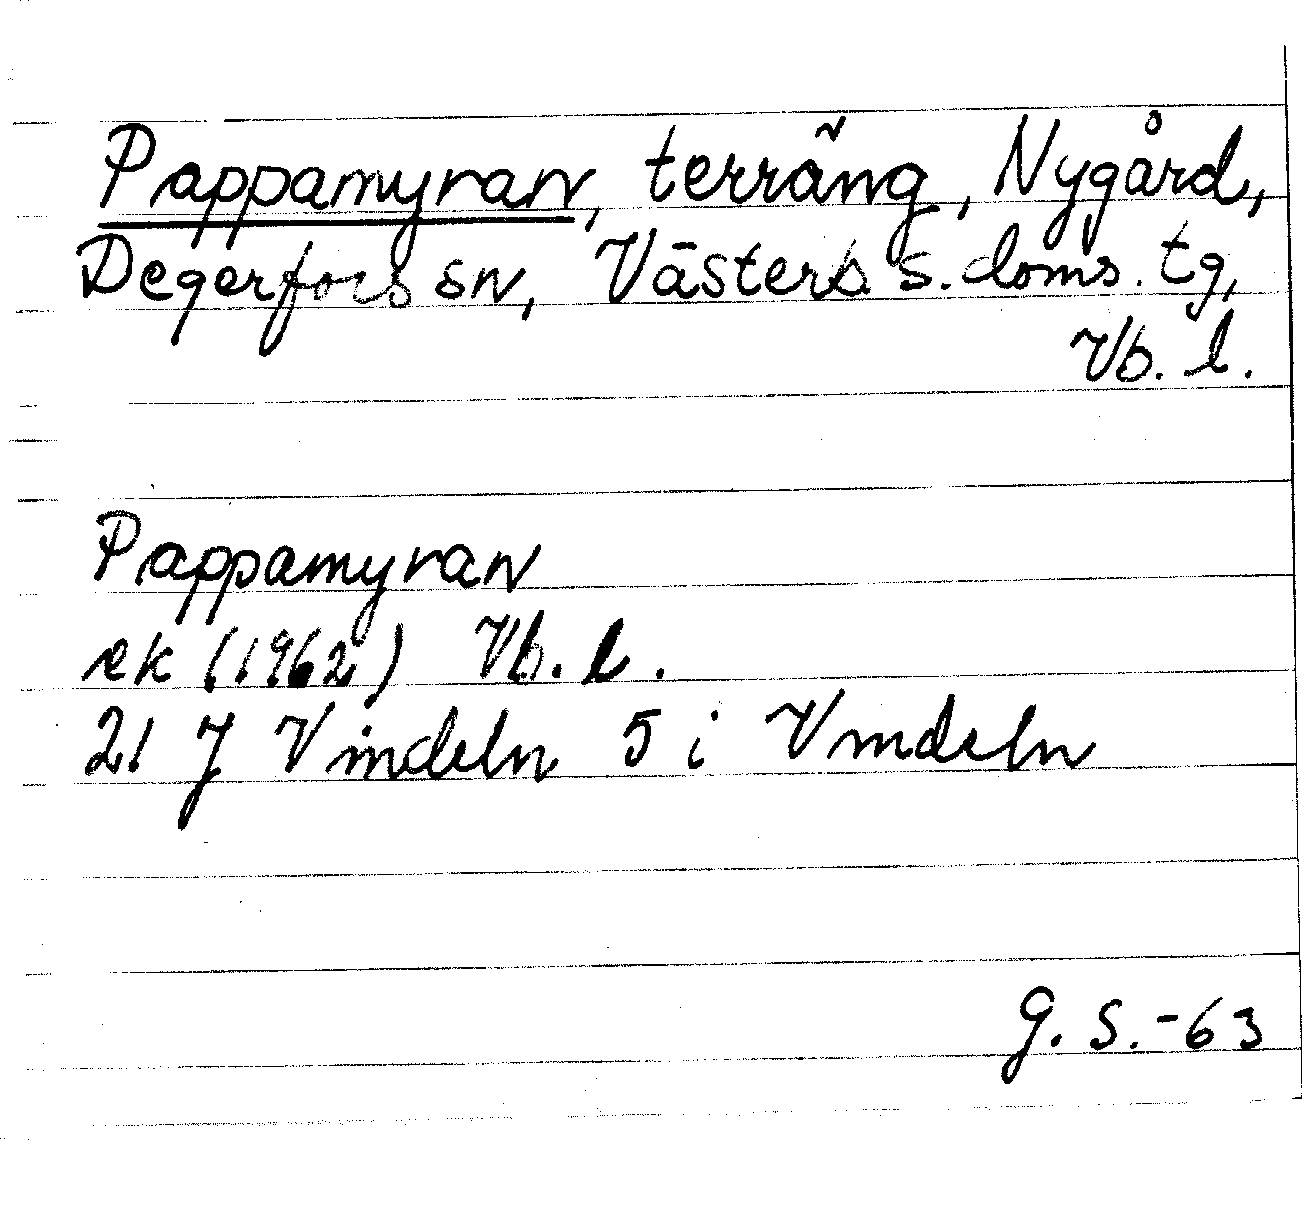 Pappamyran, terräng, Nygård,
Degerfors sn, Västerb. s. doms. tg,
Vb. l.
Pappamyran
ek (1962) Vb. l.
21 J Vindeln 5 i Vindeln
G. S. -63